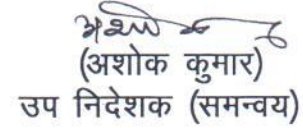 (अशोक कुमार)
उप निदेशक (समन्वय)